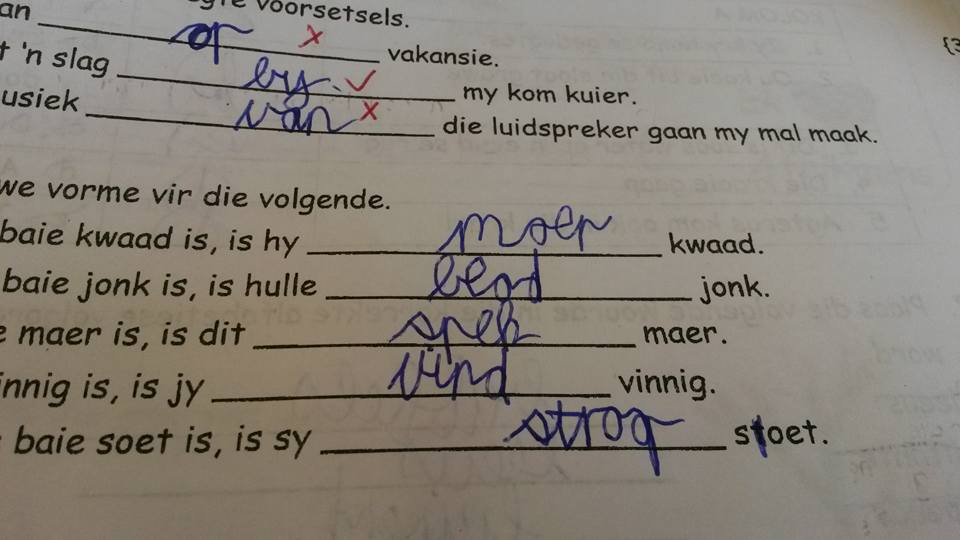 an op vakansie.
t 'n slag by my kom kuier.
usiek van die luidspreker gaan my mal maak.
we vorme vir die volgende.
baie kwaad is, is hy moer kwaad.
baie jonk is, is hulle jonk.
e maer is, is dit spek maer.
innig is, is jy vind vinnig.
baie soet is, is sy stroq stoet.